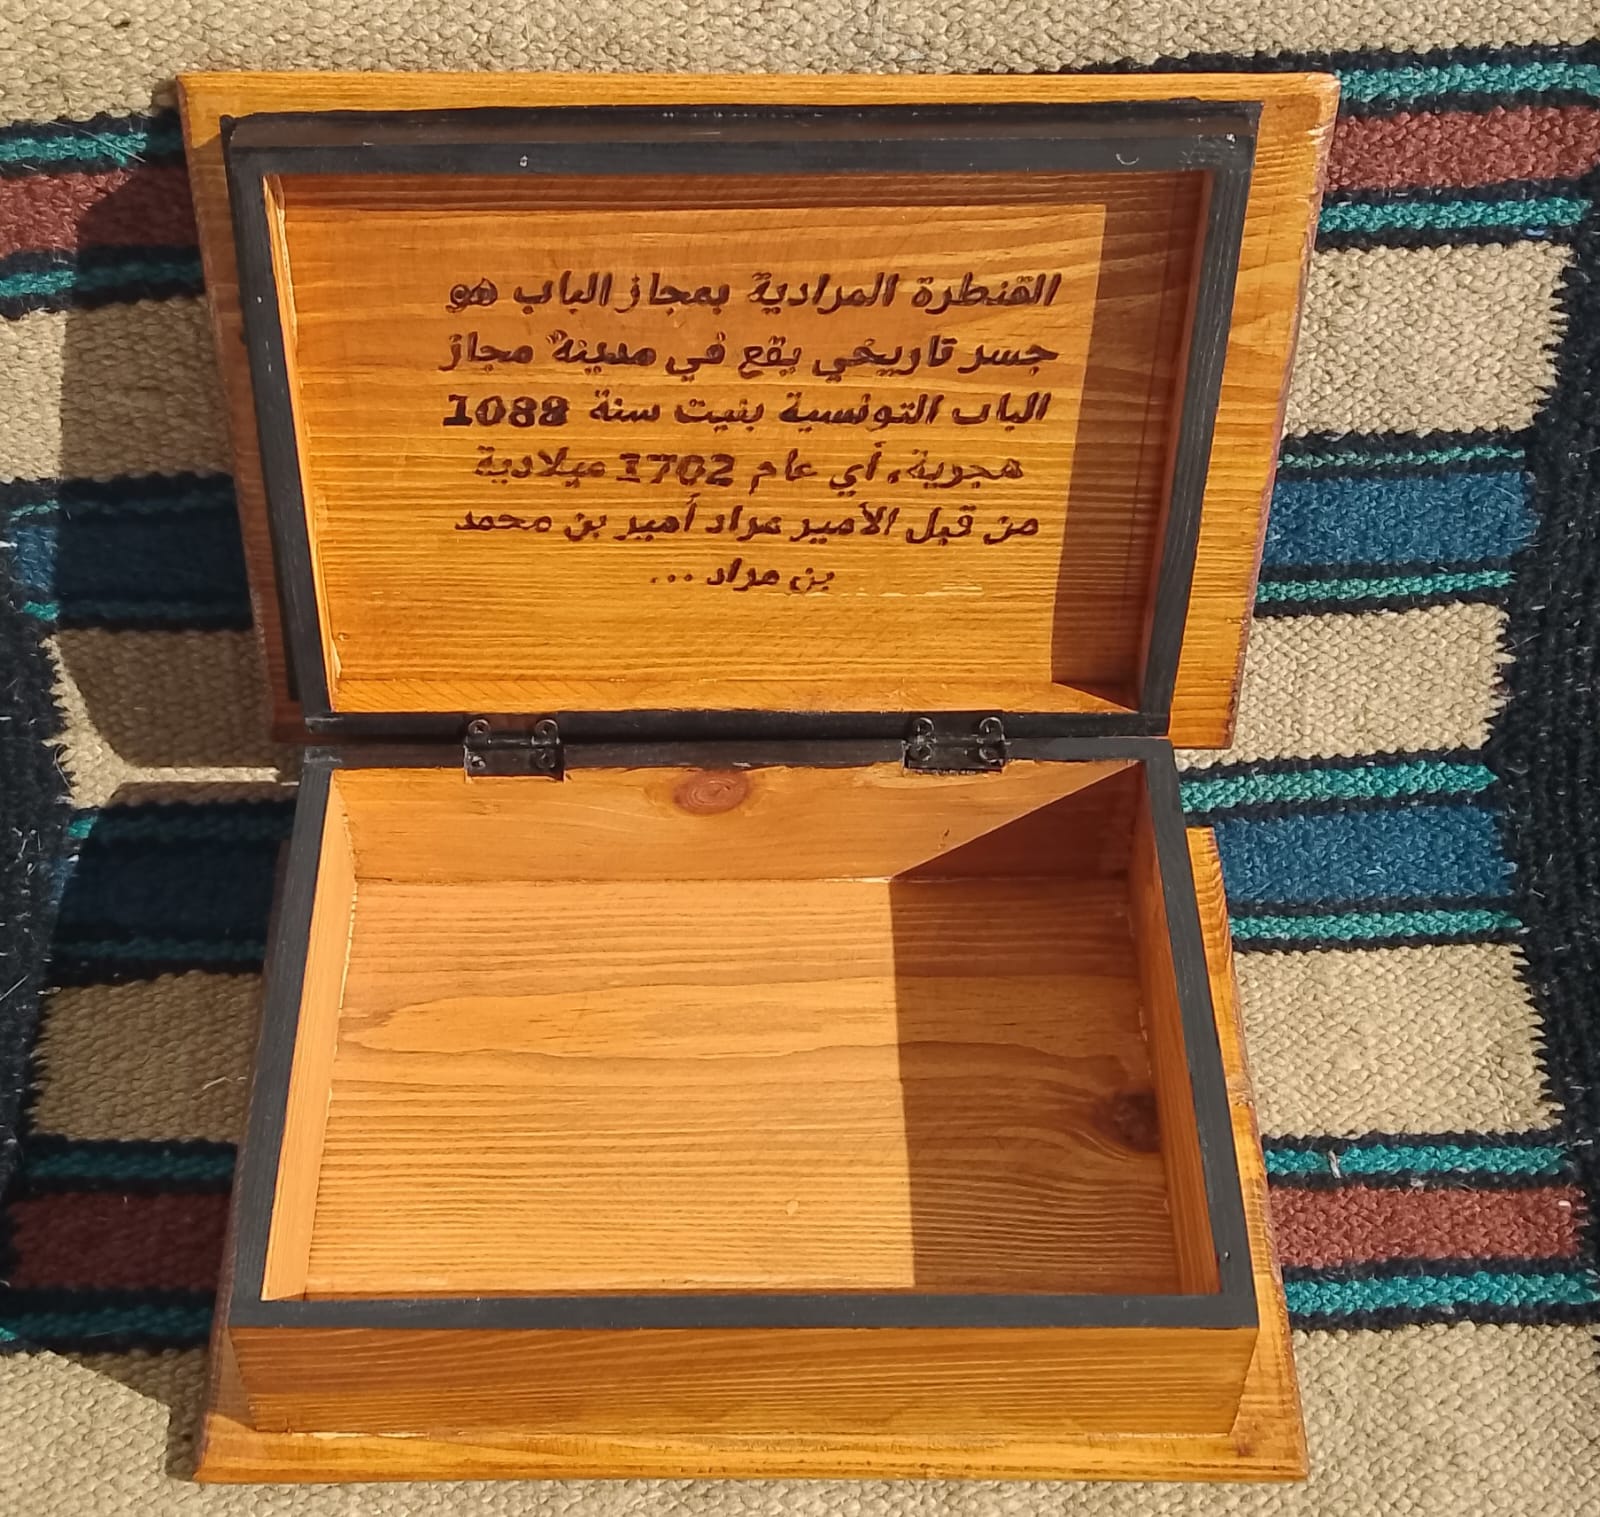 القنطرة المرادية بمجاز الباب هو
جسر تاريخي يقع في مدينة مجاز
الباب التونسية بنيت سنة 1088
هجرية، أي عام 1702 ميلادية
من قبل الأمير مراد أمير بن محمد
بن مراد ...